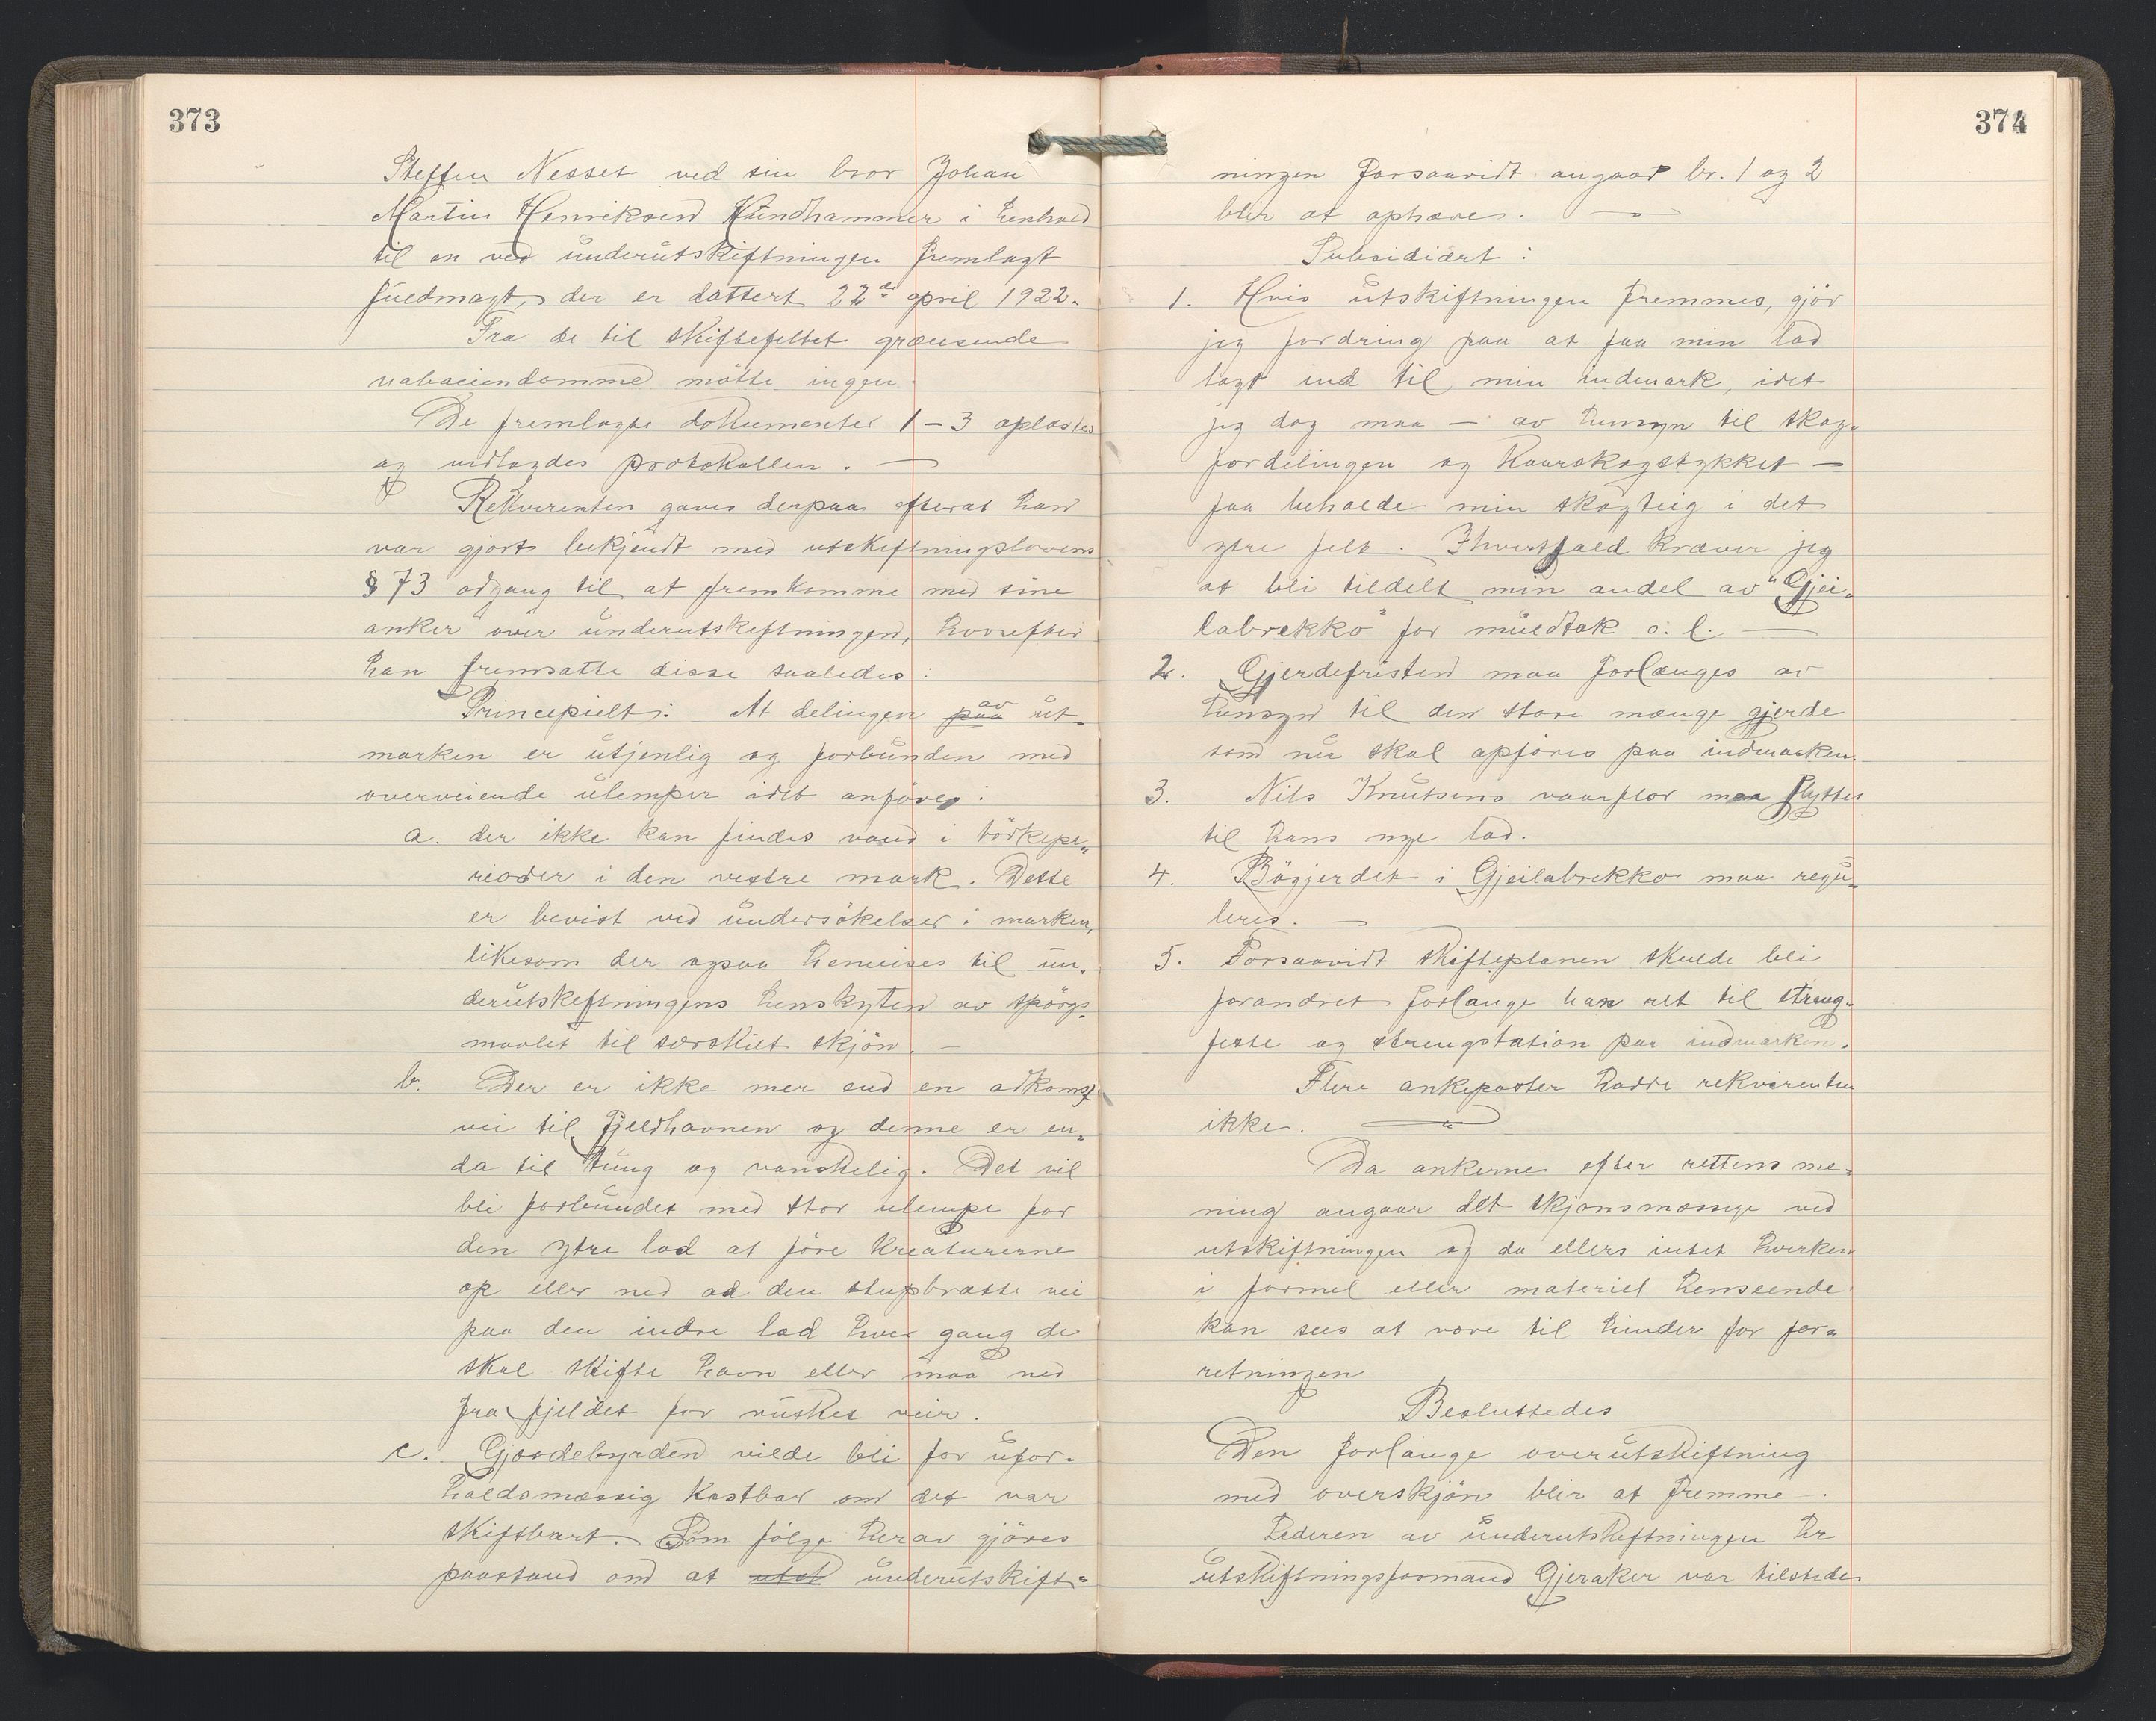 373
Steffen Nesset ved sin bror Johan
Martin Henriksen Hundhammer i henhold
til en ved underutskiftningen fremlagt
fuldmagt, der er dattert 22de april 1922.
Fra de til skiftefeltet grænsende
naboeiendomme mötte ingen.
De fremlagte dokumenter 1 – 3 oplæstes
og vedlagdes protokollen. —
Rekvirenten gaves derpaa efterat han
var gjort bekjendt med utskiftningslovens
§ 73 adgang til at fremkomme med sine
anker over underutskiftningen, hvorefter
han fremsatte disse saaledes:
Principielt: At delingen paa av ut-
marken er utjenlig og forbunden med
overveiende ulemper idet anföres:
a. der ikke kan findes vand i törkepe-
rioder i den vestre mark. Dette
er bevist ved undersökelser i marken,
likesom der ogsaa henvises til un-
derutskiftningens henskyten av spörgs-
maalet til særskilt skjön. —
b. Der er ikke mer end en adkomst
vei til fjeldhavnen og denne er en-
da til tung og vanskelig. Det vil
bli forbundet med stor ulempe for
den ytre lod at före kreaturerne
op eller ned ad den stupbratte vei
paa den indre lod hver gang de
skal skifte havn eller maa ned
fra fjeldet for rusket veir.
c. Gjærdebyrden vilde bli for ufor-
holdsmæssig kostbar om det var
skiftbart. Som fölge herav gjöres
paastand om at utsk underutskift-
374
ningen forsaavidt angaar br. 1 og 2
blir at ophæve. —
Subsidiært:
1. Hvis utskiftningen fremmes, gjör
jeg fordring paa at faa min lod
lagt ind til min indmark, idet
jeg dog maa — av hensyn til skog-
fordelingen og Kaarskogstykket —
faa beholde min skogteig i det
ytre felt. Ihvertfald kræver jeg
at bli tildelt min andel av "Gjei-
labrekko" for muldtak o. l. —
2. Gjerdefristen maa forlænges av
hensyn til den store mænge gjerde
som nu skal opföres paa indmarken.
3. Nils Knutsens vaarflor maa flyttes
til hans nye lod.
4. Bögjerdet i Gjeilabrekko maa regu-
leres. —
5. Forsaavidt skifteplanen skulde bli
forandret forlange han ret til streng-
feste og strengstation paa indmarken.
Flere ankeposter hadde rekvirenten
ikke. —
Da ankerne efter rettens me-
ning angaar det skjönsmæssige ved
utskiftningen og da ellers intet hverken
i formel eller materiel henseende
kan sees at være til hinder for for-
retningen
Besluttedes
Den forlange overutskiftning
med overskjön blir at fremme.
Lederen av underutskiftningen hr
utskiftningsformand Gjeraker var tilstede